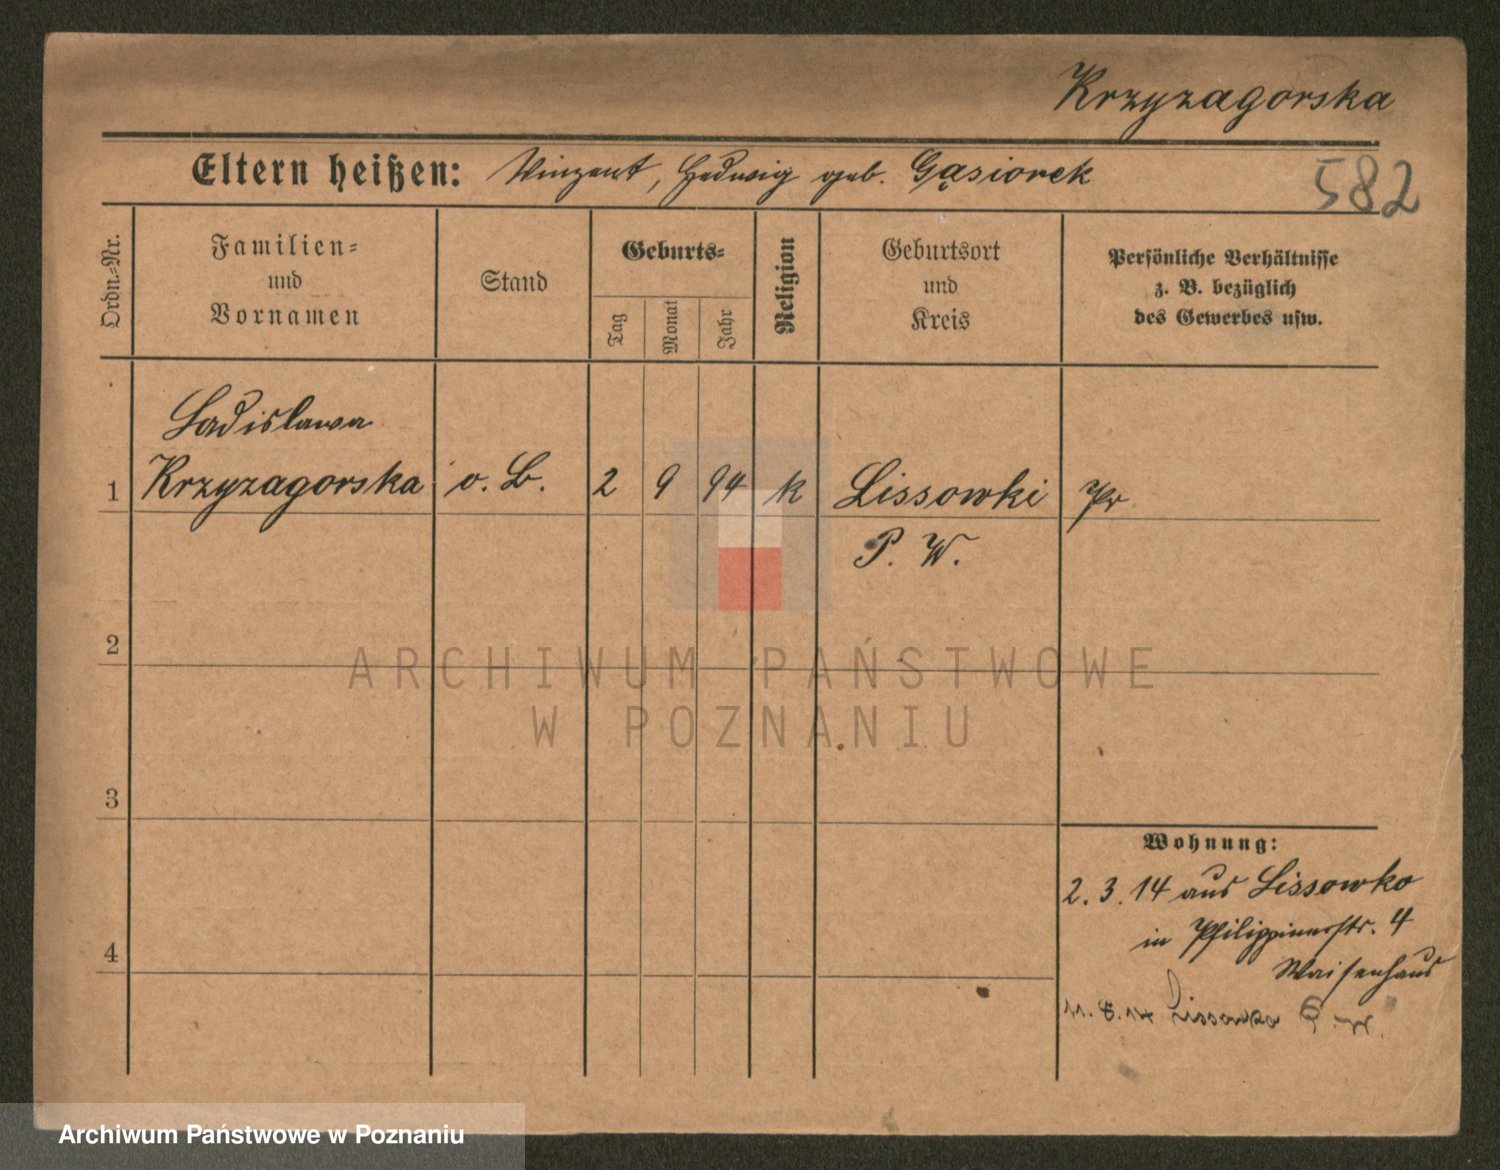 Krzyzagorska
Eltern heißen: Vinzent, Hedwig geb. Gąsiorek
582
Ordn.=Nr.
Familien=
und
Vornamen
Stand
Geburts=
Tag
Monat
Jahr
Religion
Geburtsort
und
Kreis
Persönliche Verhältnisse
z. B. bezüglich
des Gewerbes usw.
Ladislawa
1 Krzyzagorska o. B. 2 9 94 k Lissowki Pr
P. W.
2
ARCHIWUM PAŃSTWOWE
W POZNANIU
3
Wohnung:
2. 3. 14 aus Lissowko
in Philippinerstr. 4
4
Waisenhaus
11. 8. 14 Lissowko P. W.
Archiwum Państwowe w Poznaniu